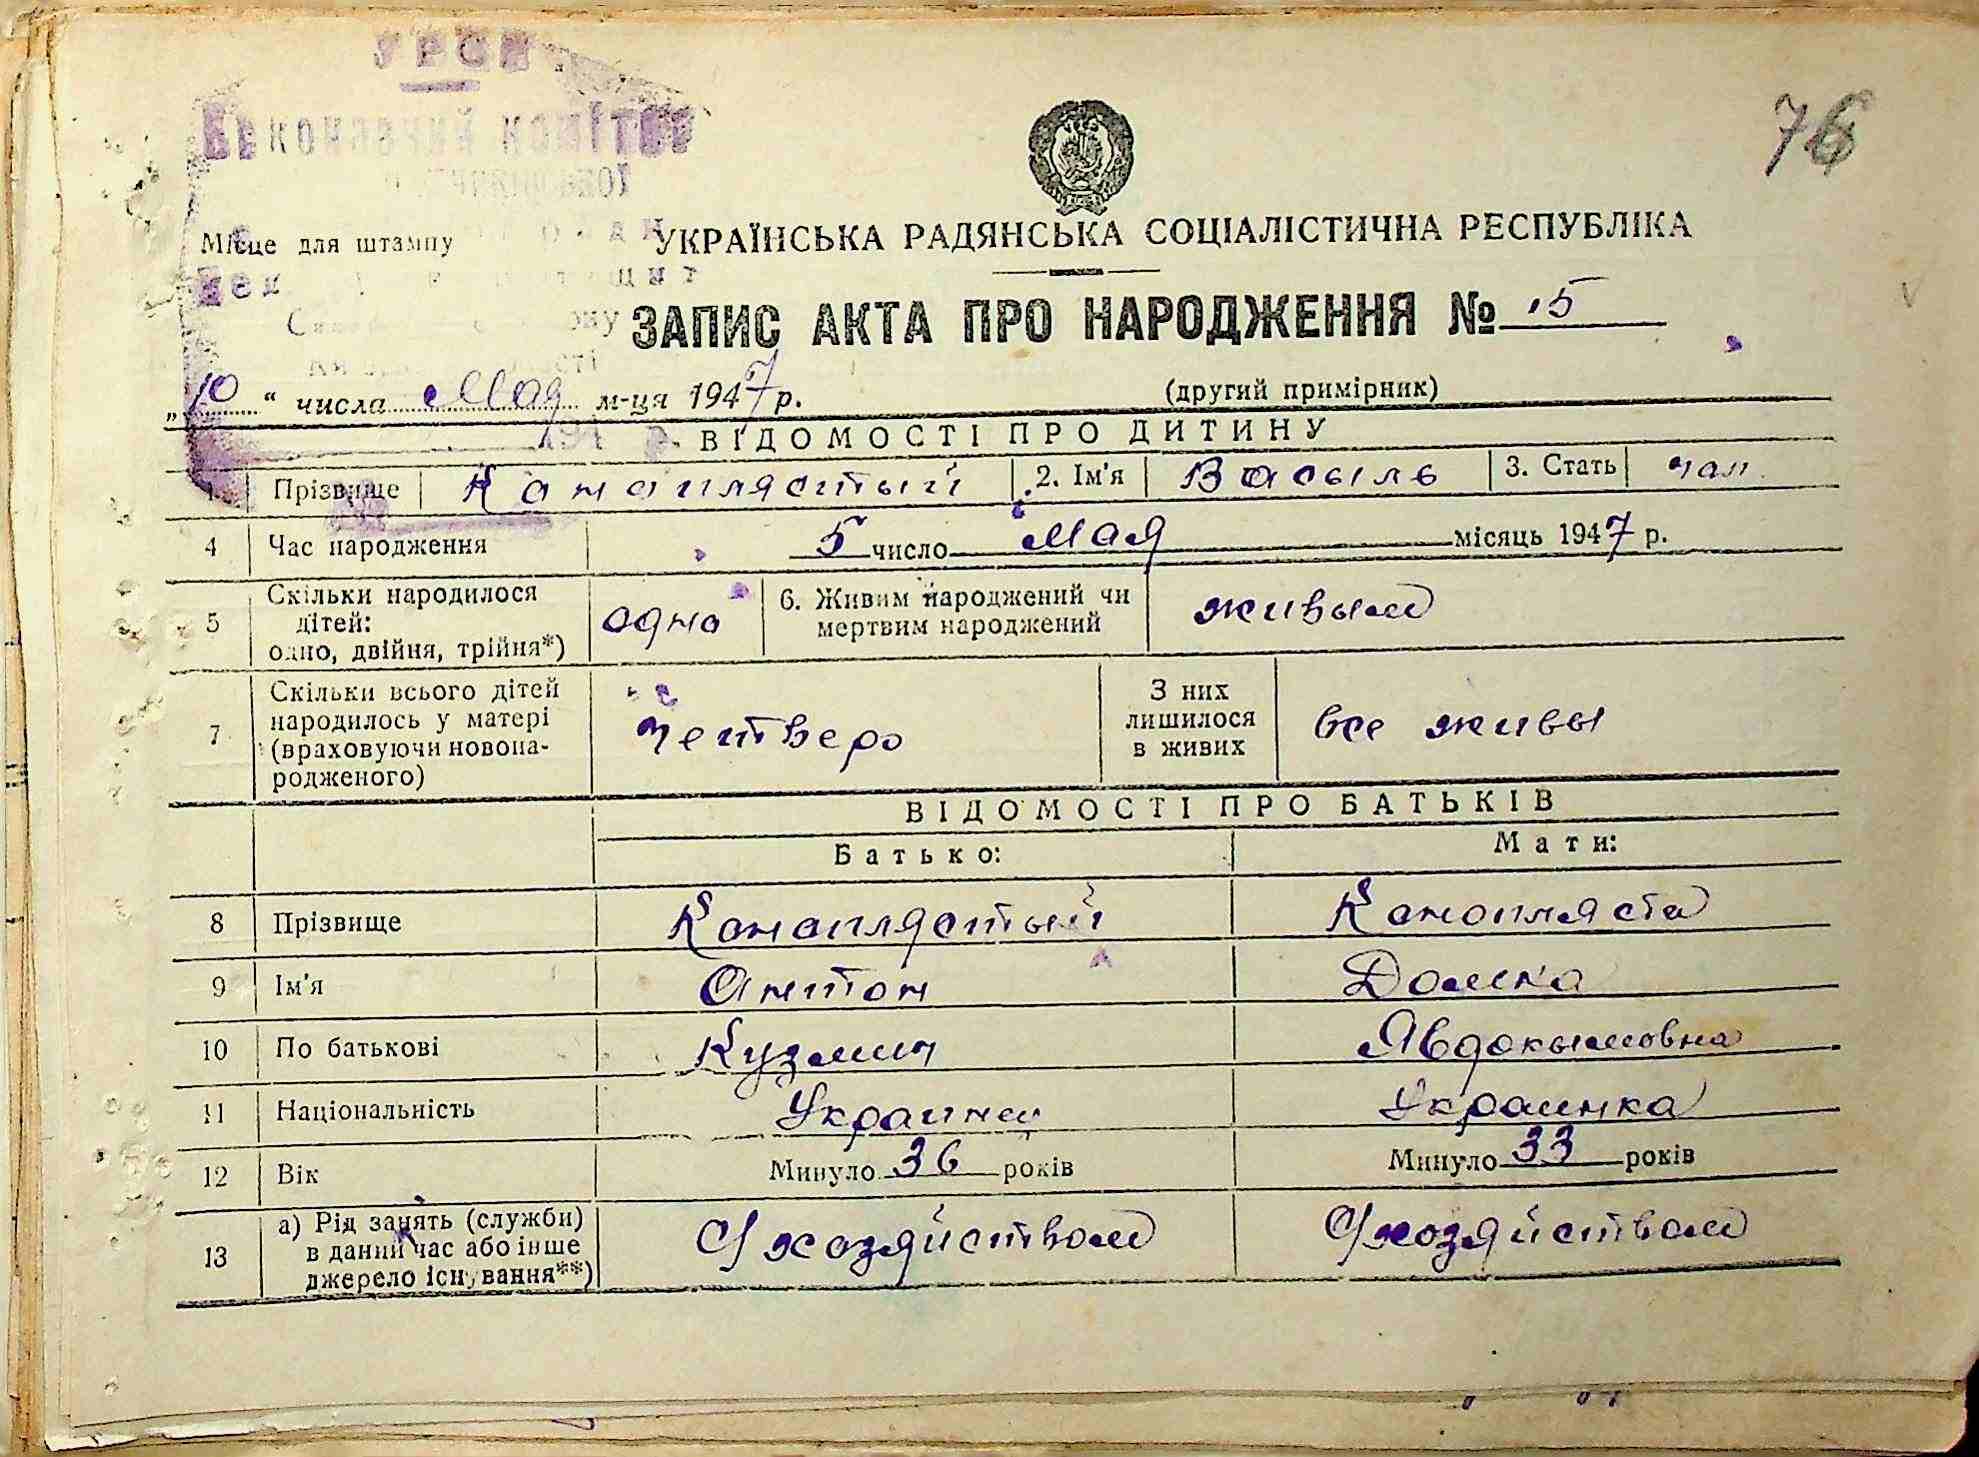 УРСР
Виконавчий комітет
76
Місце для штампу
УКРАЇНСЬКА РАДЯНСЬКА СОЦІАЛІСТИЧНА РЕСПУБЛІКА
ЗАПИС АКТА ПРО НАРОДЖЕННЯ № 15
„10“ числа Мая м-ця 1947 р.
(другий примірник)
ВІДОМОСТІ ПРО ДИТИНУ
1. Прізвище Канаплястый 2. Ім'я Васыль 3. Стать чол.
4 Час народження 5 число Мая місяць 1947 р.
5 Скільки народилося дітей: одно, двійня, трійня*) одно 6. Живим народжений чи мертвим народжений живым
7 Скільки всього дітей народилось у матері (враховуючи новона-родженого) четверо З них лишилося в живих все живы
ВІДОМОСТІ ПРО БАТЬКІВ
Батько: Мати:
8 Прізвище Коноплястый Конопляста
9 Ім'я Антон Домка
10 По батькові Кузмич Явдокымовна
11 Національність Украинец Украинка
12 Вік Минуло 36 років Минуло 33 років
13 а) Рід занять (служби) в даний час або інше джерело існування**) С/хозяйством С/хозяйством